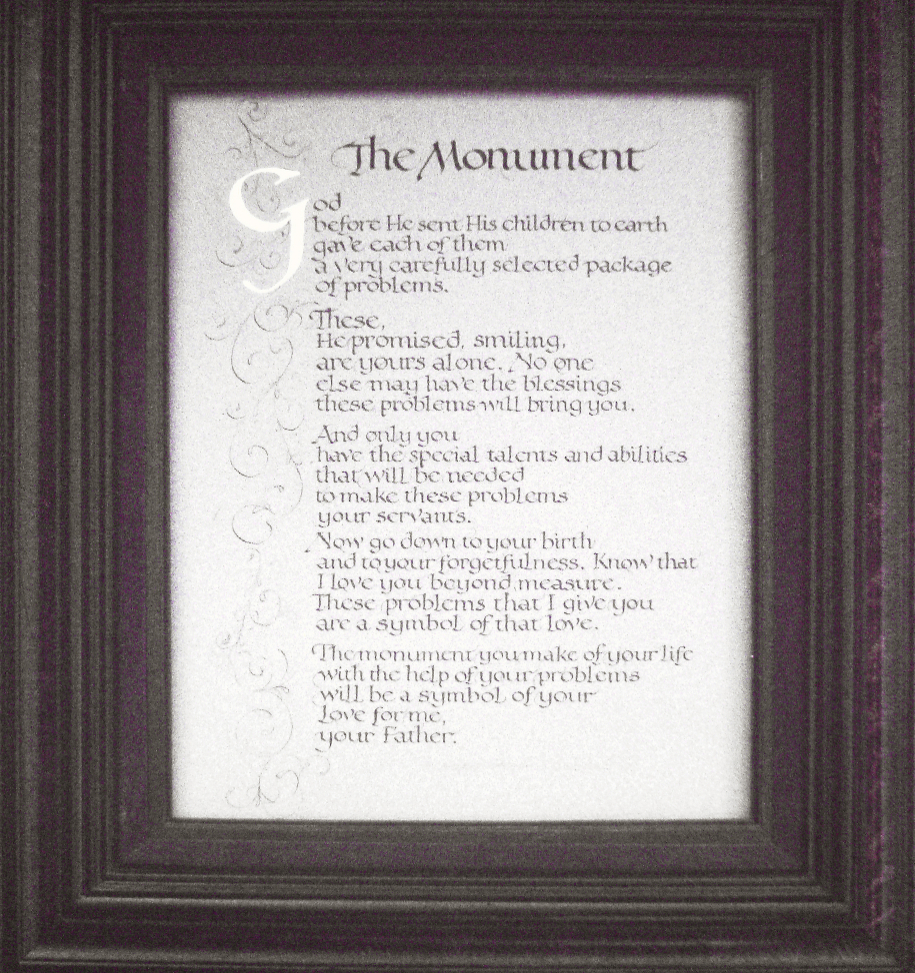 The Monument
God
before He sent His children to earth
gave each of them
a very carefully selected package
of problems.
These,
He promised, smiling,
are yours alone. No one
else may have the blessings
these problems will bring you.
And only you
have the special talents and abilities
that will be needed
to make these problems
your servants.
Now go down to your birth
and to your forgetfulness. Know that
I love you beyond measure.
These problems that I give you
are a symbol of that love.
The monument you make of your life
with the help of your problems
will be a symbol of your
love for me,
your Father.